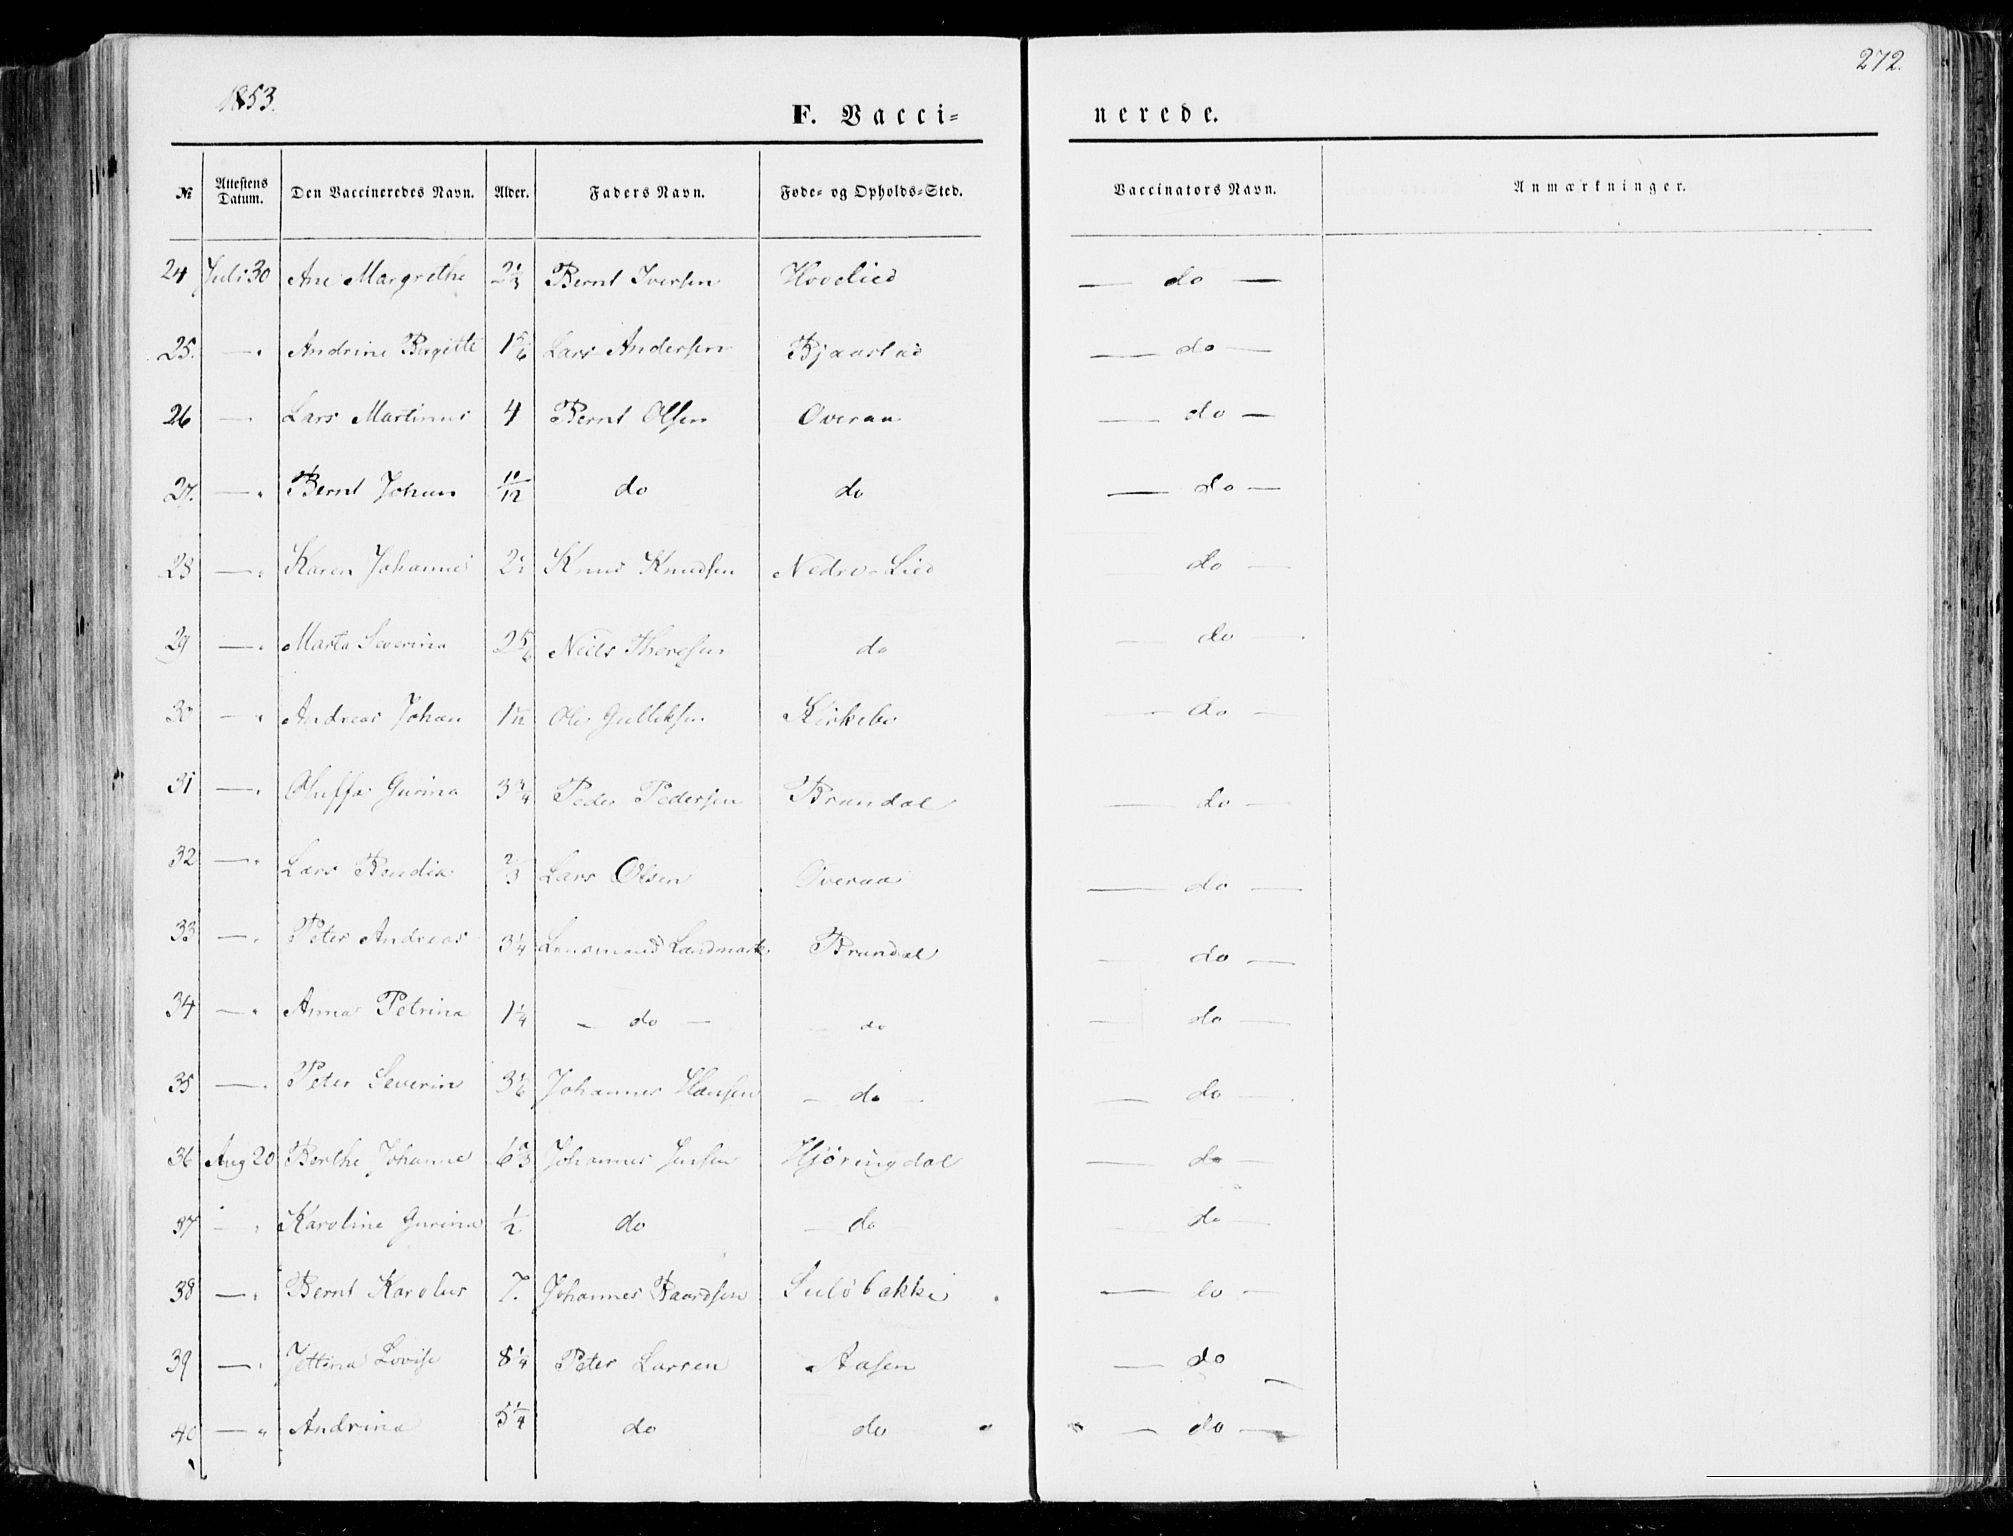 272.
1853.
F. Vaccinerede.
№ Attestens Datum. Den Vaccineredes Navn. Alder. Faders Navn. Føde- og Opholds-Sted. Vaccinators Navn. Anmærkninger.
24 Juli 30 Ane Margrethe 2 1/3 Bernt Iversen Hovelied — do —
25. — " Andrine Bergitte 1 5/6 Lars Andersen Bjaastad — do —
26 — Lars Martinus 4 Bernt Olsen Overaa — do —
27. — " Bernt Johan 11/12 do do — do —
28 — " Karen Johanne Knud Knudsen Nedre-Lied — do —
29 — " Marta Severina 2 5/6 Niels do — do —
30 — " Andreas Johan Ole Gulliksen Kirkebø — do —
31 — " Oluffa Gurina 3 3/4 Peder Pedersen Brandal — do —
32 — " Lars 2/3 Lars Olsen Overaa — do —
33 — " Peter Andreas 3 1/4 Lensmand Landmark Brandal — do —
34 — " Anna Petrina 1 1/4 — do — — do — do —
35 — " Peter Severin 3 1/6 Johannes Hansen — do — — do —
36 Aug 20 Berthe Johanne 6 2/3 Johannes Jensen Hjøringdal — do —
37 — " Karoline Gurina 1/2 do — do — — do —
38 — " Bernt Karolus 7. Johannes Baardsen Sulebakke — do —
39 — " Jettina Lovise 8 1/4 Peter Larsen Aasen — do
40 — " Andrina 5 1/4 do do — do —